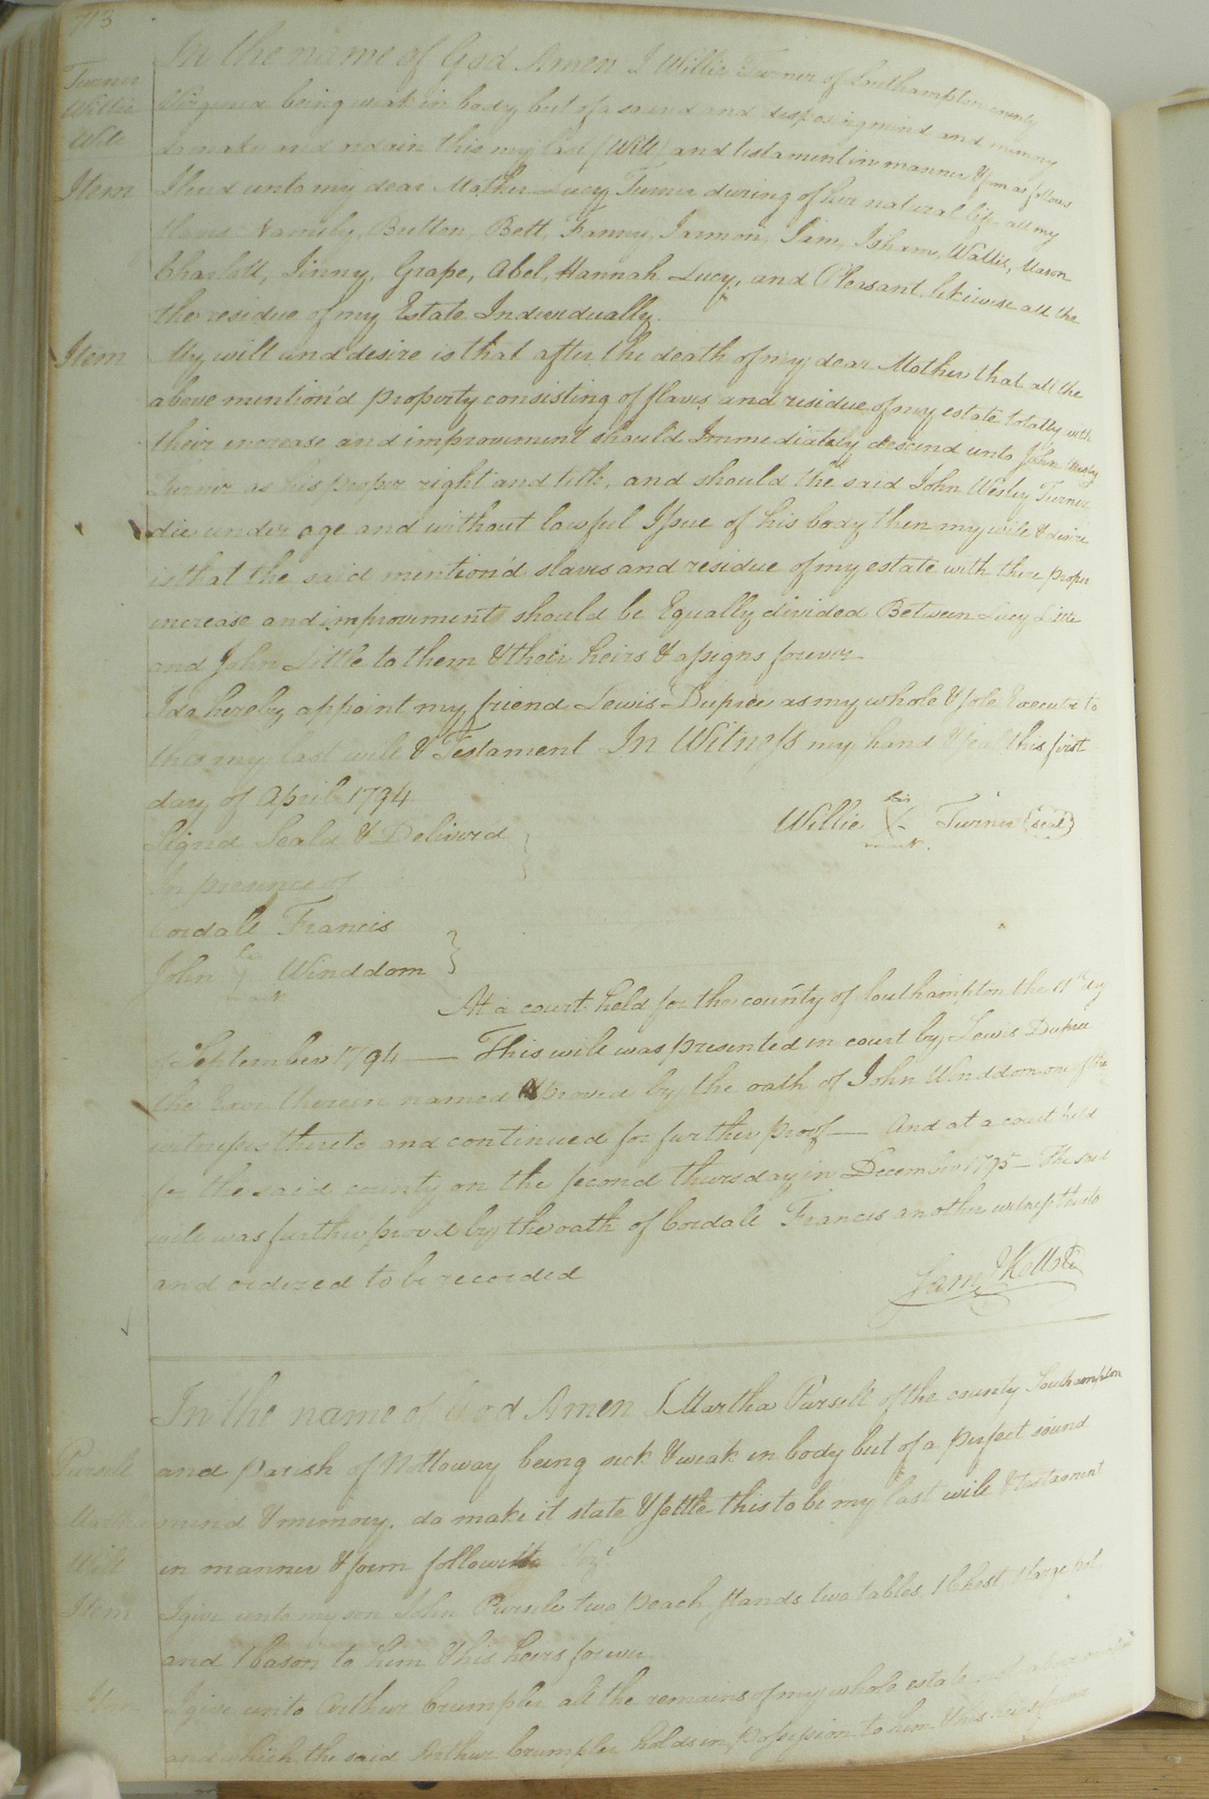 713
In the name of God Amen I Willie Turner of Southampton county
Turner
Willie
Will
Virginia being weak in body but of a sound and disposing mind and memory
do make and ordain this my last (Will) and testament in manner & form as follows
Item I lend unto my dear Mother Lucy Turner during of her natural life all my
slaves Namely, Britton, Bett, Fanny, Jarmon, Jim, Isham, Wallis, Mason
Charlott, Jinny, Grape, Abel, Hannah Lucy, and Pleasant, likewise all the
the residue of my Estate Individually.
Item My will and desire is that after the death of my dear Mother that all the
above mention'd property consisting of slaves and residue of my estate totally with
their increase and improvement should Immediately descend unto John Wesley
Turner as his proper right and title, and should the said John Wesley Turner
die under age and without lawful Issue of his body then my will & desire
is that the said mention'd slaves and residue of my estate with there proper
increase and improvements should be Equally divided Between Lucy Little
and John Little to them & their heirs & assigns forever
I do hereby appoint my friend Lewis Dupree as my whole & sole Executr to
this my last will & Testament In Witness my hand & seal this first
day of April 1794
Signd Seald & Deliverd
Willie his X mark. Turner (seal)
In presence of
Cordall Francis
John his mark Winddom
At a court held for the county of Southampton the 11th day
of September 1794 — This will was presented in court by Lewis Dupree
the Exor therein named & proved by the oath of John Winddom one of the
witnesses thereto and continued for further proof — And at a court held
for the said county on the second thursday in December 1795 — The said
will was further proved by the oath of Cordall Francis another witness thereto
and ordered to be recorded
Sam Kello
In the name of God Amen I Martha Pursell of the county Southampton
Pursell
Martha
Will
and parish of Nottoway being sick & weak in body but of a perfect sound
mind & memory. do make it state & settle this to be my last will & testament
in manner & form following Vizt
Item I give unto my son John Pursell two peach stands two tables 1 Chest 1 large pot
and 1 bason to him & his heirs forever
Item I give unto Arthur Crumpler all the remains of my whole estate
and which the said Arthur Crumpler holds in possession to him & his heirs forever